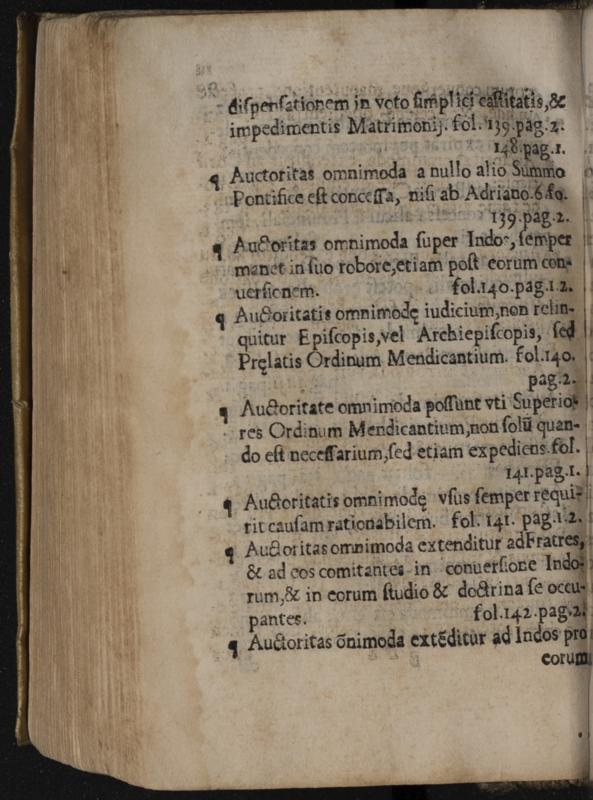 dispensationem in voto simplici castitatis,&
impedimentis Matrimonij. fol. 139.pag.2.
148.pag.1.
¶ Auctoritas omnimoda a nullo alio Summo
Pontifice est concessa, nisi ab Adriano.6.fo.
139.pag.2.
¶ Auctoritas omnimoda super Indos, semper
manet in suo robore,etiam post eorum con-
uersionem. fol.140.pag.1.2.
¶ Auctoritatis omnimodę iudicium,non relin-
quitur Episcopis,vel Archiepiscopis, sed
Pręlatis Ordinum Mendicantium. fol.140.
pag.2.
¶ Auctoritate omnimoda possunt vti Superio-
res Ordinum Mendicantium,non solũ quan-
do est necessarium,sed etiam expediens.fol.
141.pag.1.
¶ Auctoritatis omnimodę vsus semper requi-
rit causam rationabilem. fol. 141. pag.1.2.
¶ Auctoritas omnimoda extenditur ad Fratres,
& ad eos comitantes in conuersione Indo-
rum,& in eorum studio & doctrina se occu-
pantes. fol.142.pag.2.
¶ Auctoritas õnimoda extẽditur ad Indos pro
eorum